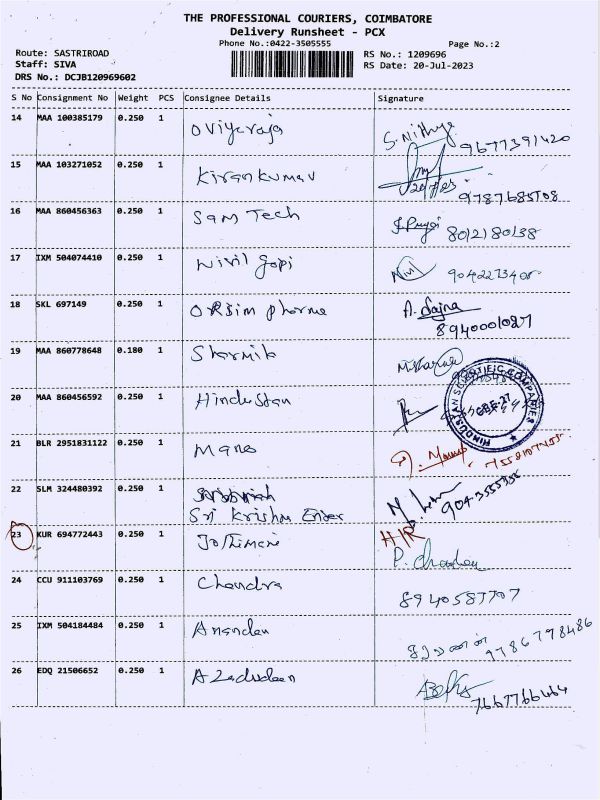 THE PROFESSIONAL COURIERS, COIMBATORE
Delivery Runsheet - PCX
Phone No.:0422-3505555
Page No.:2
Route: SASTRIROAD
Staff: SIVA
DRS No.: DCJB120969602
RS No.: 1209696
RS Date: 20-Jul-2023
S No Consignment No Weight PCS Consignee Details Signature
14 MAA 100385179 0.250 1 Oviyaraja S.Nithya 9677391420
15 MAA 103271052 0.250 1 Kiran kumar 9787685708
16 MAA 860456363 0.250 1 Sam Tech 8012180138
17 IXM 504074410 0.250 1 Nivil Gopi
18 SKL 697149 0.250 1 Orsim pharma A. Sajna 8940001027
19 MAA 860778648 0.180 1 Sharmila
20 MAA 860456592 0.250 1 Hindustan
HINDUSTAN SCIENTIFIC COMPANIES
21 BLR 2951831122 0.250 1 Mano
22 SLM 324480392 0.250 1
Sri Krishna Enter
23 KUR 694772443 0.250 1 H/R
24 CCU 911103769 0.250 1 Chandra P. Chandra 8940587707
25 IXM 504184484 0.250 1 Anandan சரவணன் 9786798486
26 EDQ 21506652 0.250 1 Azadudeen 7667766464